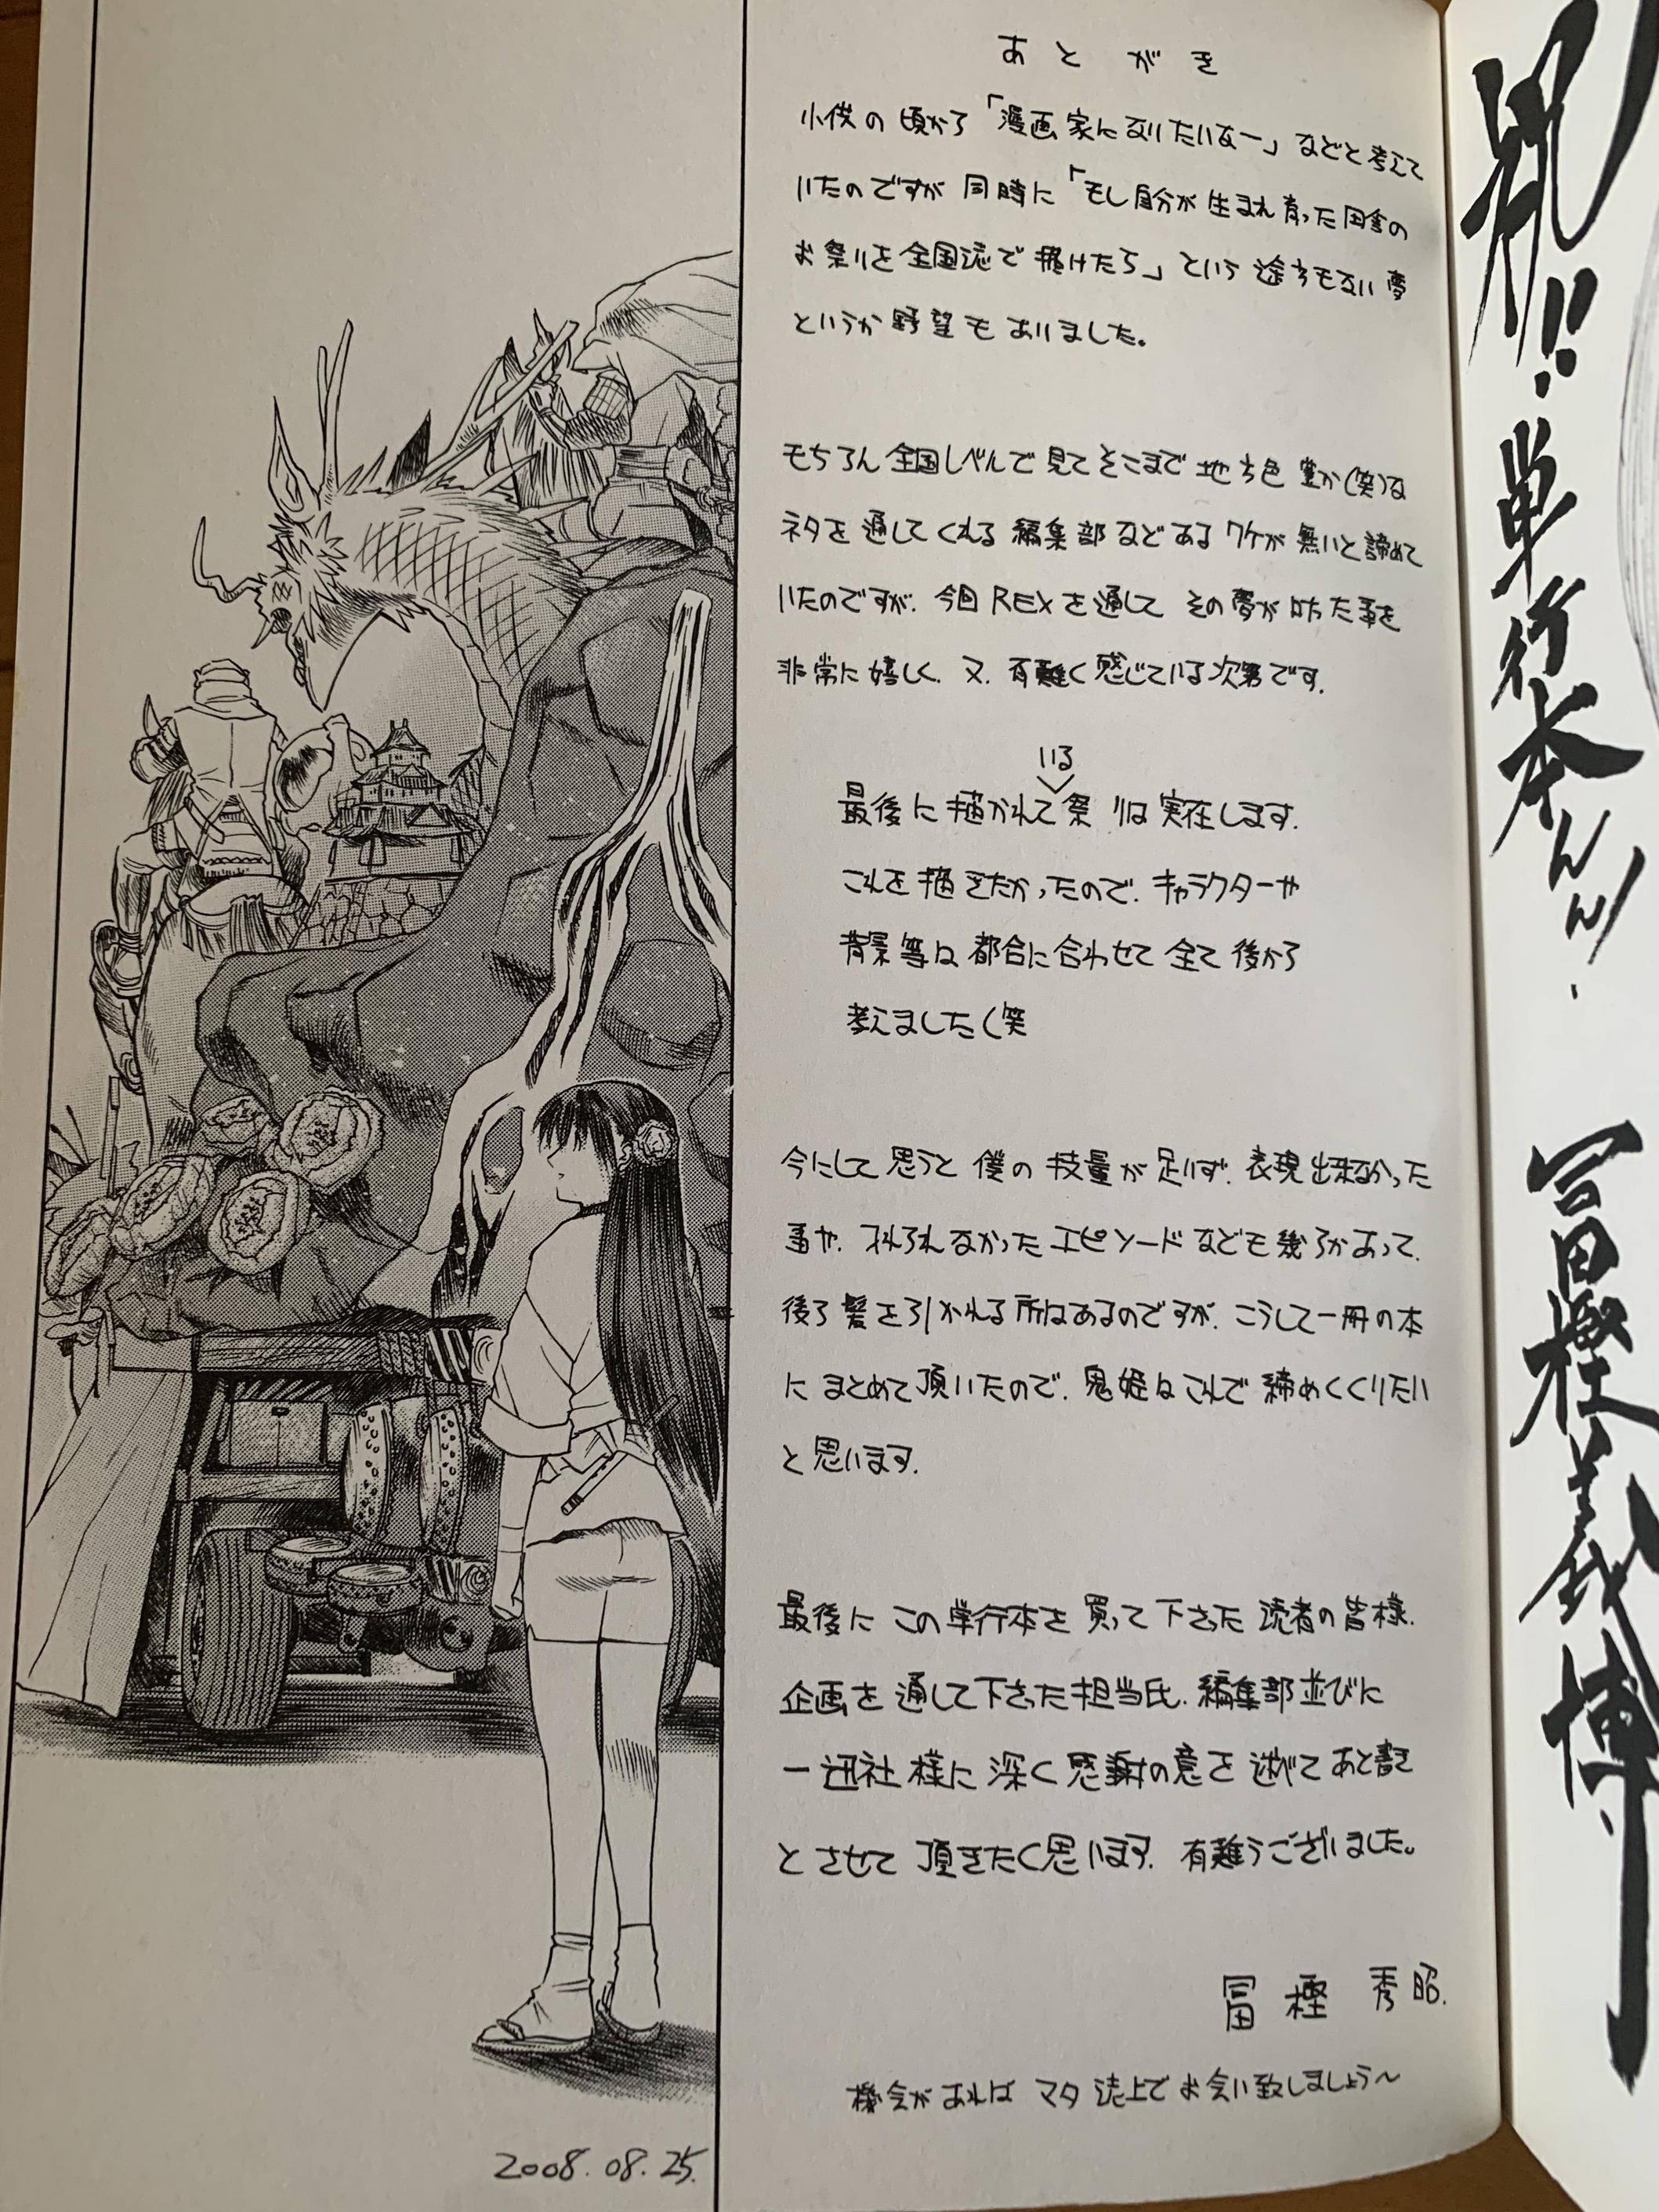 あとがき
小供の頃から「漫画家になりたいなー」などと考えて
いたのですが 同時に「もし自分が生まれ育った田舎の
お祭りを全国誌で描けたら」という途方もない夢
というか野望もありました。
もちろん全国レベルで見てそこまで地方色豊か(笑)な
ネタを通してくれる編集部などあるワケが無いと諦めて
いたのですが、今回REXを通してその夢が叶った事を
非常に嬉しく、又、有難く感じている次第です。
いる
最後に描かれて祭りは実在します。
これを描きたかったので、キャラクターや
背景等は都合に合わせて全て後から
考えました(笑
今にして思うと僕の技量が足りず、表現出来なかった
事や、入れられなかったエピソードなども幾らかあって、
後ろ髪を引かれる所はあるのですが、こうして一冊の本
にまとめて頂いたので、鬼姫はこれで締めくくりたい
と思います。
最後にこの単行本を買って下さった読者の皆様、
企画を通して下さった担当氏、編集部並びに
一迅社様に深く感謝の意を述べてあと書き
とさせて頂きたく思います。有難うございました。
冨樫 秀昭.
機会があればマタ誌上でお会い致しましょう〜
2008.08.25.
祝!!単行本んん!
冨樫義博